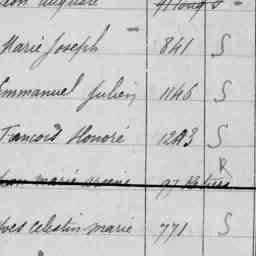 Auguste
Marie Joseph 841 S
Emmanuel Julien 1146 S
François Honoré 1243 S
R
marie
Yves Celestin marie 771 S